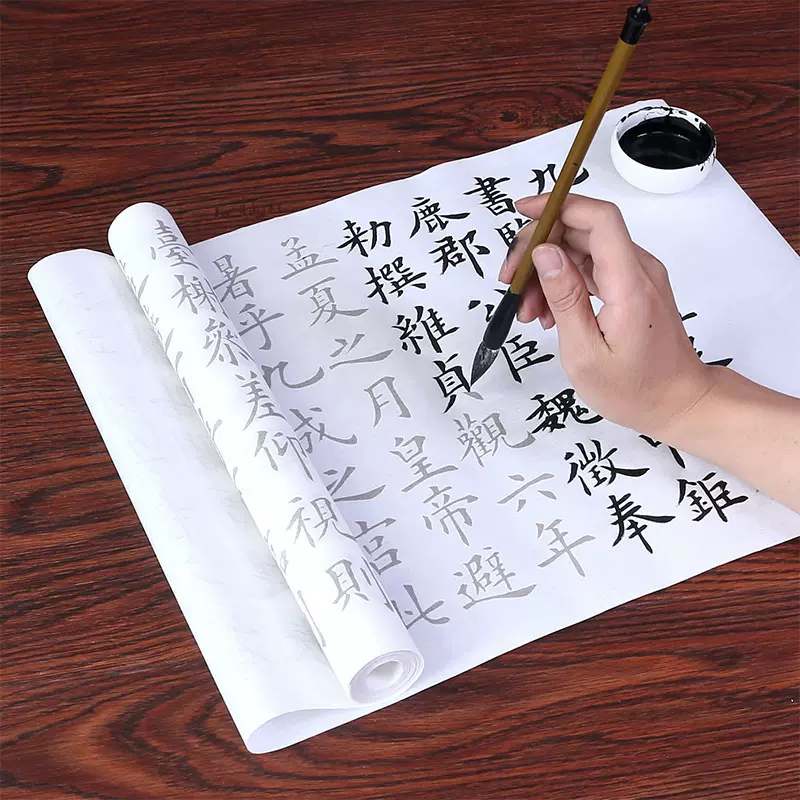 九
書鉅
鹿郡公臣魏徵奉
勅撰維貞觀六年
孟夏之月皇帝避
暑乎九成之宮此
臺榭參差仰視則